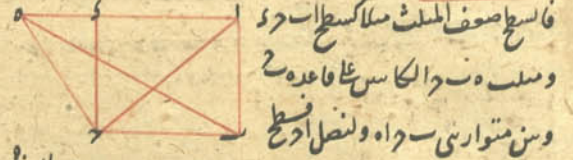 فالسطح ضعف المثلث مثلا كسطح اب ح د
ومثلث ه ب ح الكائنين على قاعدة ب ح
وبين متوازيي ب ح اه ولنصل اح فسطح
ه د ا
ح ب